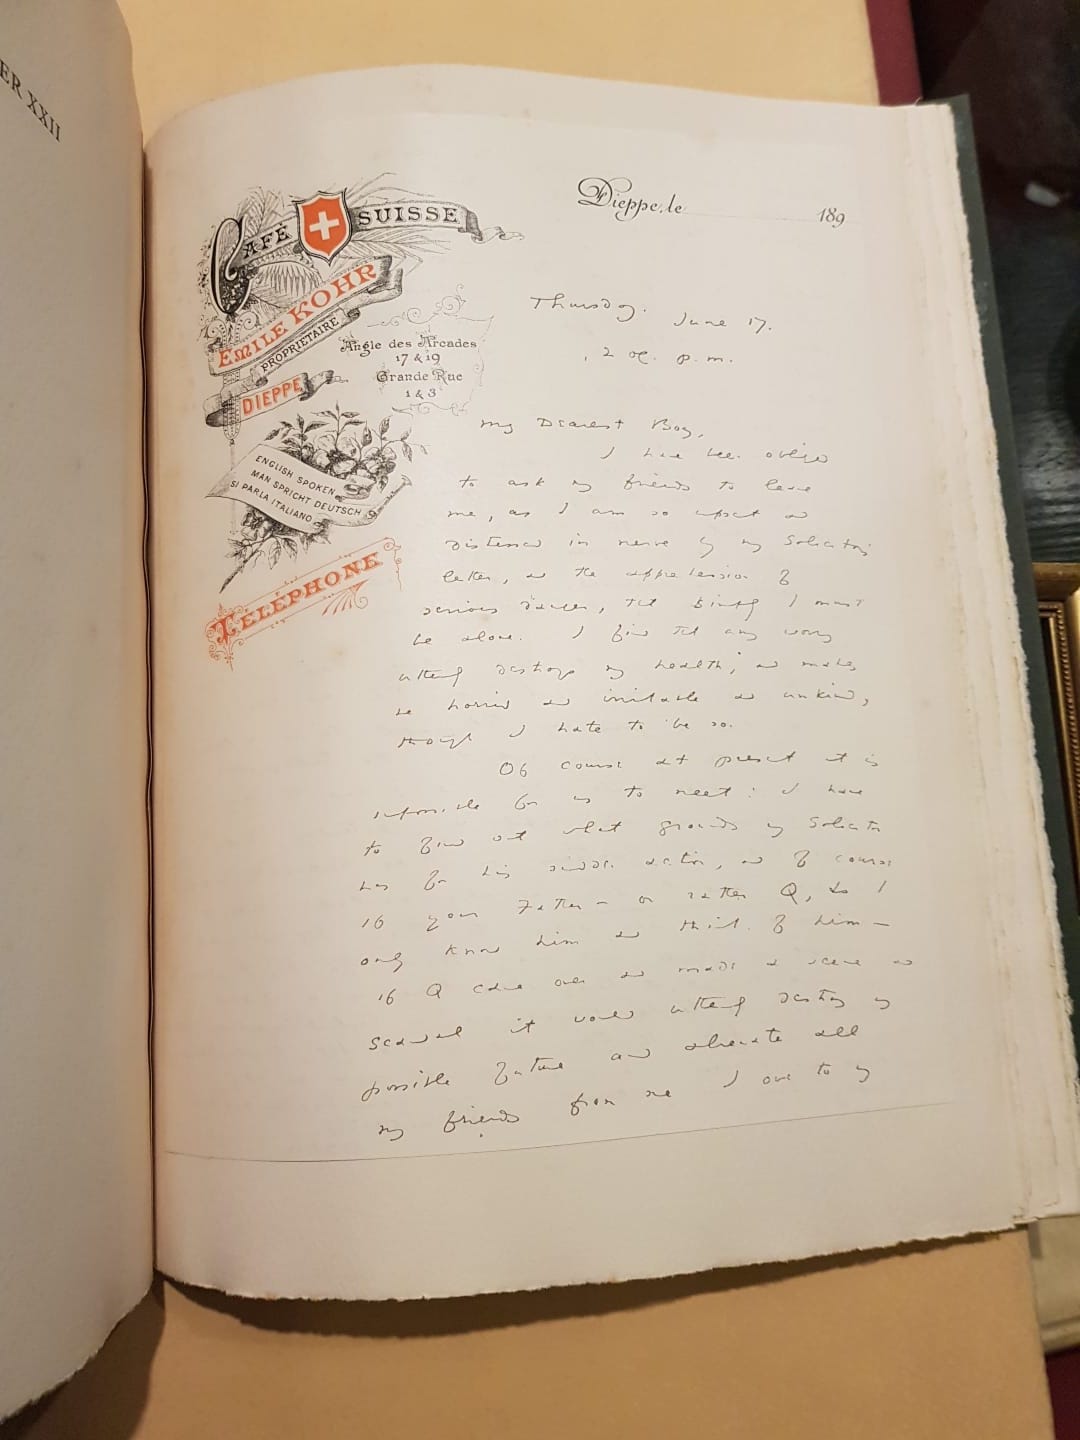 ER XXII
CAFÉ SUISSE
EMILE KOHR
PROPRIETAIRE
DIEPPE
Angle des Arcades
17 & 19
Grande Rue
1 & 3
ENGLISH SPOKEN
MAN SPRICHT DEUTSCH
SI PARLA ITALIANO
TÉLÉPHONE
Dieppe, le 189
Thursday. June 17.
2 oc. p.m.
My Dearest Boy,
I have been obliged
to ask my friends to leave
me, as I am so upset and
distressed in nerve by my Solicitor's
letter, and the apprehension of
serious danger, that simply I must
be alone. I find that any worry
utterly destroys my health, and makes
me horrid and irritable and unkind,
though I hate to be so.
Of course at present it is
impossible for us to meet: I have
to find out what grounds my Solicitor
has for his sudden action, and of course
if your Father – or rather Q, as I
only know him and think of him –
if Q came over and made a scene and
scandal it would utterly destroy my
possible future and alienate all
my friends from me. I owe to my